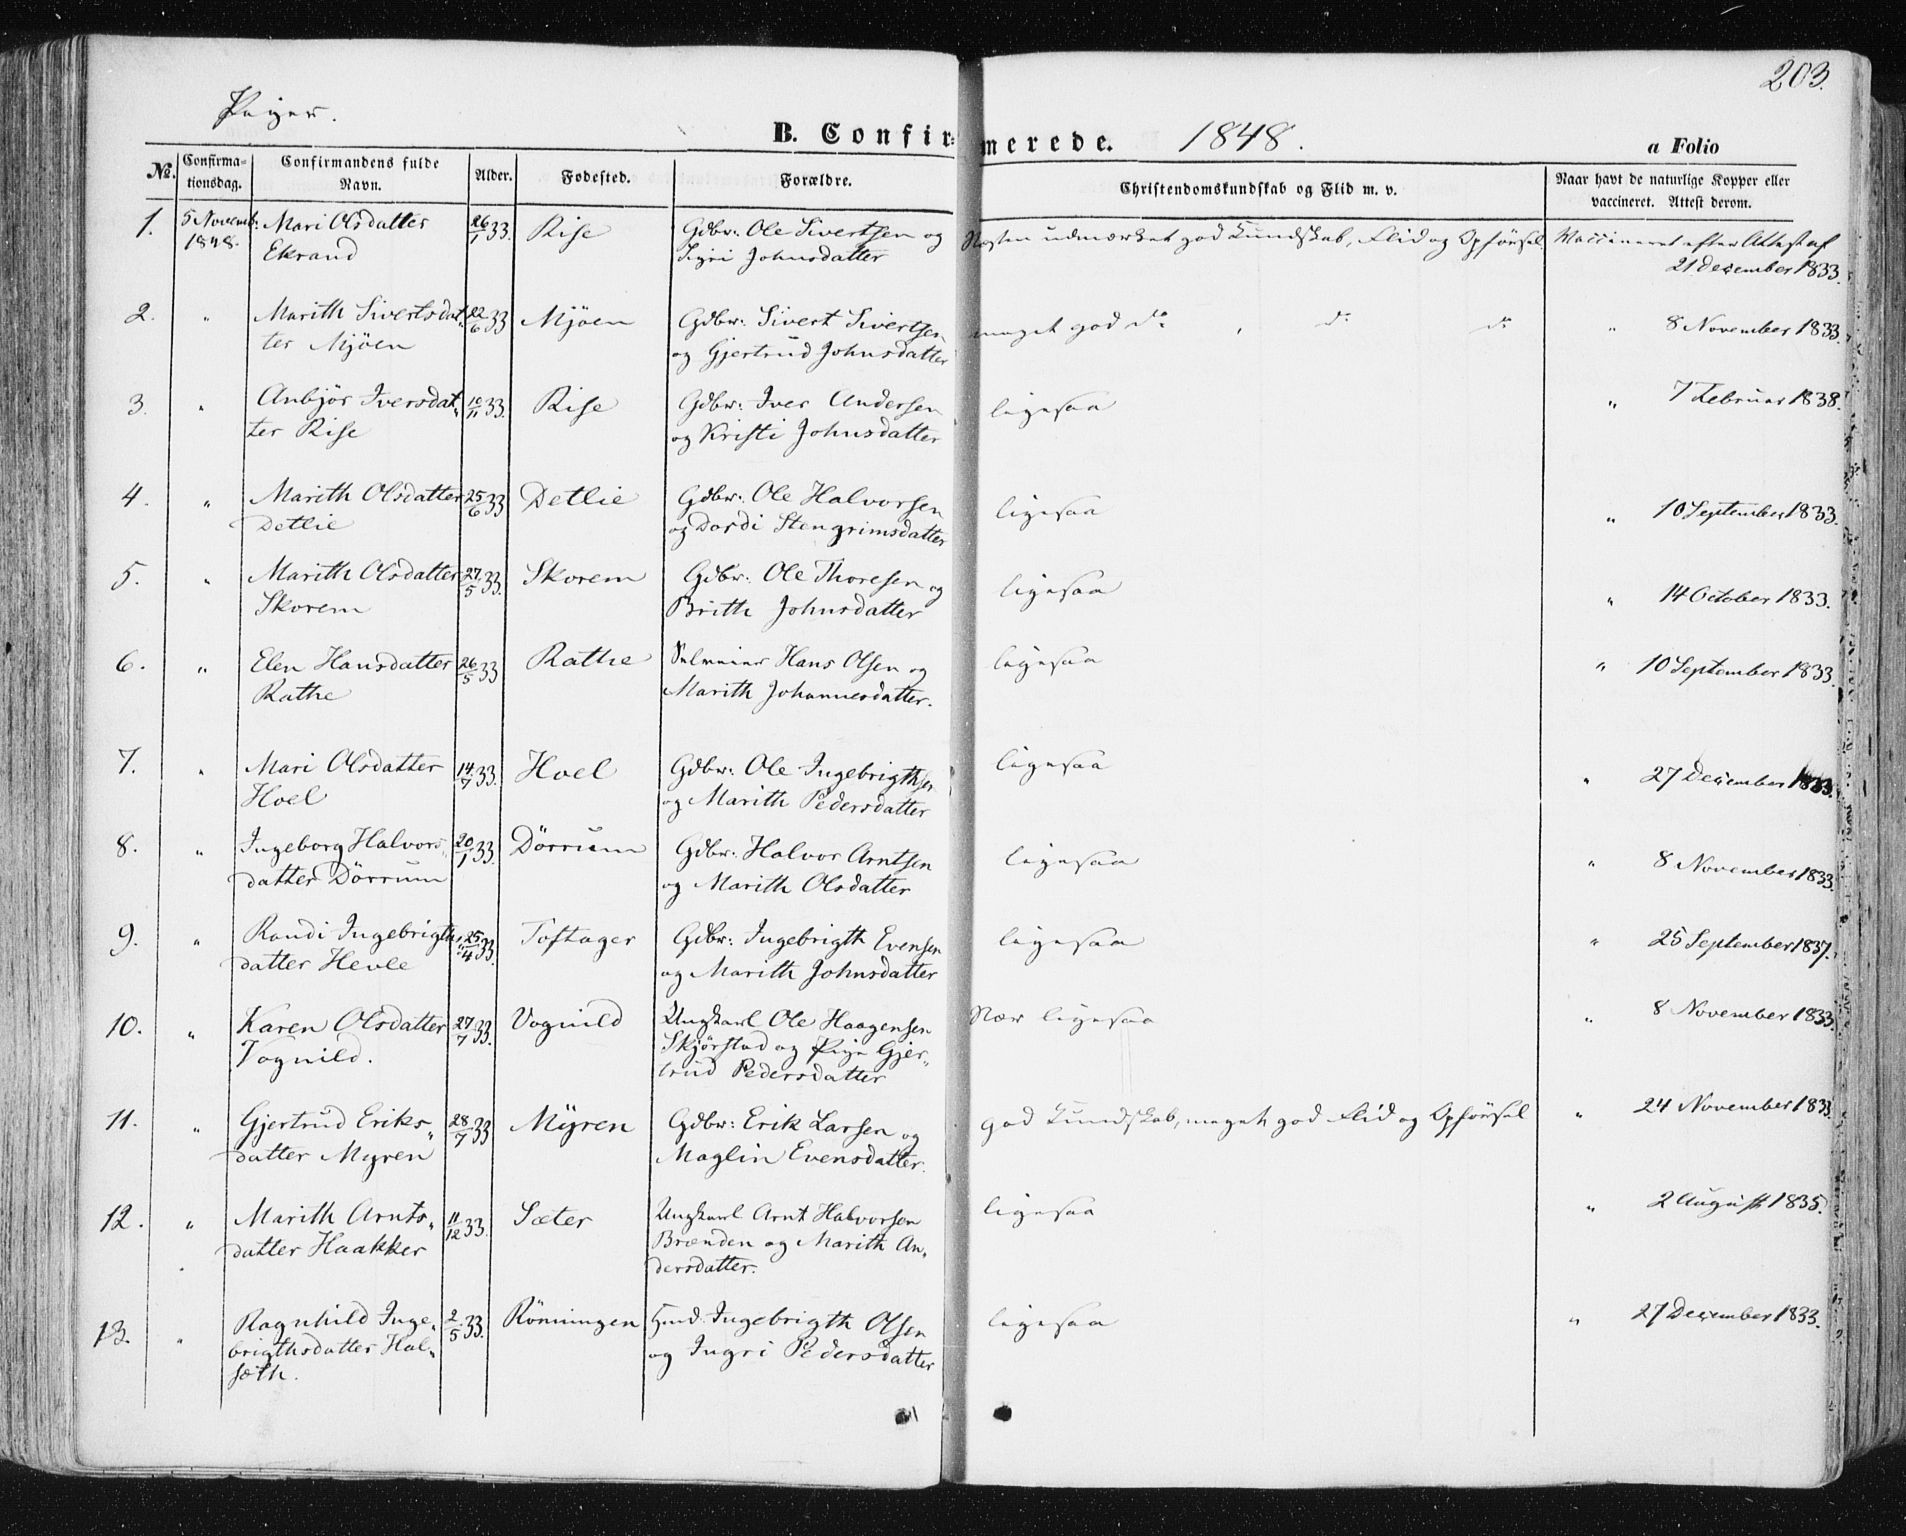 203.
Piger.
B. Confirmerede. 1848.
a Folio
No. Confirmationsdag. Confirmandens fulde Navn. Alder. Fødested. Forældre. Christendomskundskab og Flid m. v. Naar havt de naturlige Kopper eller vaccineret. Attest derom.
1. 5 Novemb: Mari Olsdatter 26/1 33. Rise Gdbr: Ole Sivertsen og Næsten udmærket god Kundskab, Flid og Opførsel Vaccineret efter Attest af
1848. Ekrand Sigri Johnsdatter 21 December 1833.
2. " Marith Sivertsdat- 22/6 33 Mjöen Gdbr: Sivert Sivertsen meget god do , do do " 8 November 1833.
ter Mjöen og Gjertrud Johnsdatter
3. " Anbjör Iversdat- 10/11 33. Rise Gdbr: Iver Andersen ligesaa " 7 Februar 1838.
ter Rise og Kristi Johnsdatter
4. " Marith Olsdatter 25/6 33 Detlie Gdbr: Ole Halvorsen ligesaa " 10 September 1833.
Detlie og Dordi Stengrimsdatter
5. " Marith Olsdatter 27/5 33. Skorem Gdbr: Ole Thoresen og ligesaa " 14 October 1833.
Skorem Brith Johnsdatter
6. " Elen Hansdatter 26/5 33 Rathe Hans Olsen og ligesaa " 10 September 1833.
Rathe Marith Johannesdatter.
7. " Mari Olsdatter 14/7 33. Hoel Gdbr: Ole Ingebrigthsen ligesaa " 27 December 1833.
Hoel og Marith Pedersdatter
8. " Ingeborg Halvors- 20/1 33. Dörrum Gdbr: Halvor Arntsen ligesaa " 8 November 1833.
datter Dörrum og Marith Olsdatter
9. " Randi Ingebrigth- 25/4 33. Toftager Gdbr: Ingebrigth Evensen ligesaa " 25 September 1837.
datter Hevle og Marith Johnsdatter
10. " Karen Olsdatter 27/7 33. Vognild Ungkarl Ole Haagensen Nær ligesaa " 8 November 1833.
Vognild. Skjörstad og Pige Gjer-
trud Pedersdatter
11. " Gjertrud Eriks- 28/7 33 Myren Gdbr: Erik Larsen og god Kundskab, meget god Flid og Opførsel " 24 November 1833.
datter Myren Maglin Evensdatter.
12. " Marith Arnts- 11/12 33. Sæter Ungkarl Arnt Halvorsen ligesaa " 2 August 1835.
datter Haakker Brænden og Marith An-
dersdatter.
13. " Ragnhild Inge- 2/5 33. Rönningen Ingebrigth Olsen ligesaa " 27 December 1833.
brigthsdatter Hal- og Ingri Pedersdatter
sæth.